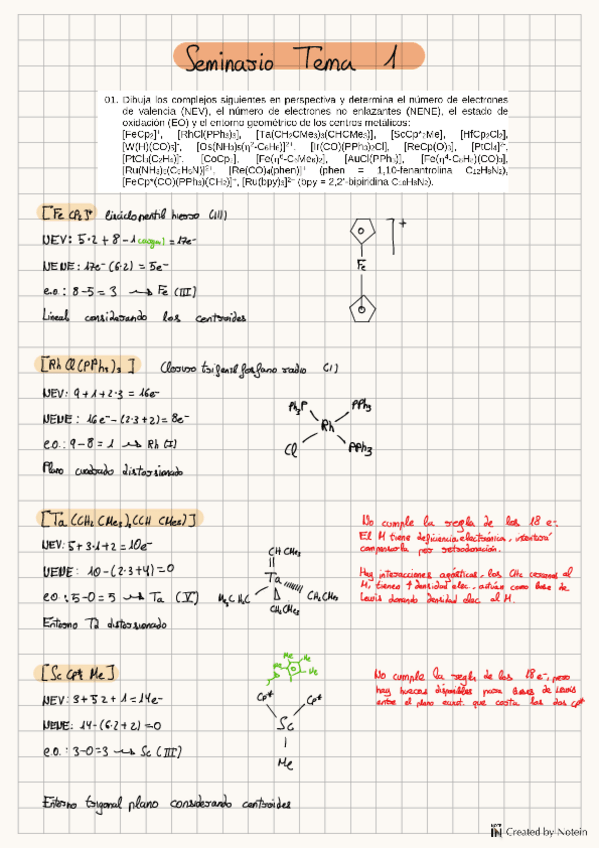 Seminario Tema 1
01. Dibuja los complejos siguientes en perspectiva y determina el número de electrones
de valencia (NEV), el número de electrones no enlazantes (NENE), el estado de
oxidación (EO) y el entorno geométrico de los centros metálicos:
[FeCp₂]⁺, [RhCl(PPh₃)₃], [Ta(CH₂CMe₃)₃(CHCMe₃)], [ScCp*₂Me], [HfCp₂Cl₂],
[W(H)(CO)₅]⁻, [Os(NH₃)₅(η²-C₆H₆)]²⁺, [Ir(CO)(PPh₃)₂Cl], [ReCp(O)₃], [PtCl₄]²⁻,
[PtCl₃(C₂H₄)]⁻, [CoCp₂], [Fe(η⁶-C₆Me₆)₂], [AuCl(PPh₃)], [Fe(η⁴-C₄H₄)(CO)₃],
[Ru(NH₃)₅(C₅H₅N)]²⁺, [Re(CO)₄(phen)]⁺ (phen = 1,10-fenantrolina C₁₂H₈N₂),
[FeCp*(CO)(PPh₃)(CH₂)]⁺, [Ru(bpy)₃]²⁺ (bpy = 2,2'-bipiridina C₁₀H₈N₂).
[Fe Cp₂]⁺ hierro (III)
NEV: 5·2 + 8 - 1 (carga) = 17e⁻
NENE: 17e⁻ (6·2) = 5e⁻
e.o.: 8-5 = 3 → Fe (III)
Lineal considerando los centroides
]⁺
Fe
[Rh Cl (PPh₃)₃] Cloruro rodio (I)
NEV: 9 + 1 + 2·3 = 16e⁻
NENE: 16e⁻ - (2·3+2) = 8e⁻
e.o.: 9-8 = 1 → Rh (I)
Plano cuadrado distorsionado
Ph₃P
PPh₃
Rh
Cl
PPh₃
[Ta (CH₂ CMe₃)₃(CH CMe₃)]
NEV: 5 + 3·1 + 2 = 10e⁻
NENE: 10 - (2·3+4) = 0
e.o: 5-0 = 5 → Ta (V)
Entorno Td distorsionado
CH CMe₃
Ta
Me₃C H₂C
CH₂ CMe₃
CH₂CMe₃
No cumple la regla de los 18 e⁻.
El M tiene deficiencia electrónica, intentará
compensarla por retrodonación.
Hay interacciones agósticas, los CH₂ cercanos al
M, tienen ↑ densidad elec., actúan como base de
Lewis donando densidad elec al M.
[Sc Cp*₂ Me]
NEV: 3 + 5·2 + 1 = 14e⁻
NENE: 14 - (6·2+2) = 0
e.o.: 3-0 = 3 → Sc (III)
Entorno trigonal plano considerando centroides
Me
Me
Me
Cp*
Cp*
Sc
Me
No cumple la regla de los 18 e⁻, pero
hay huecos disponibles para bases de Lewis
entre el plano que los dos Cp*
NOTE IN Created by Notein